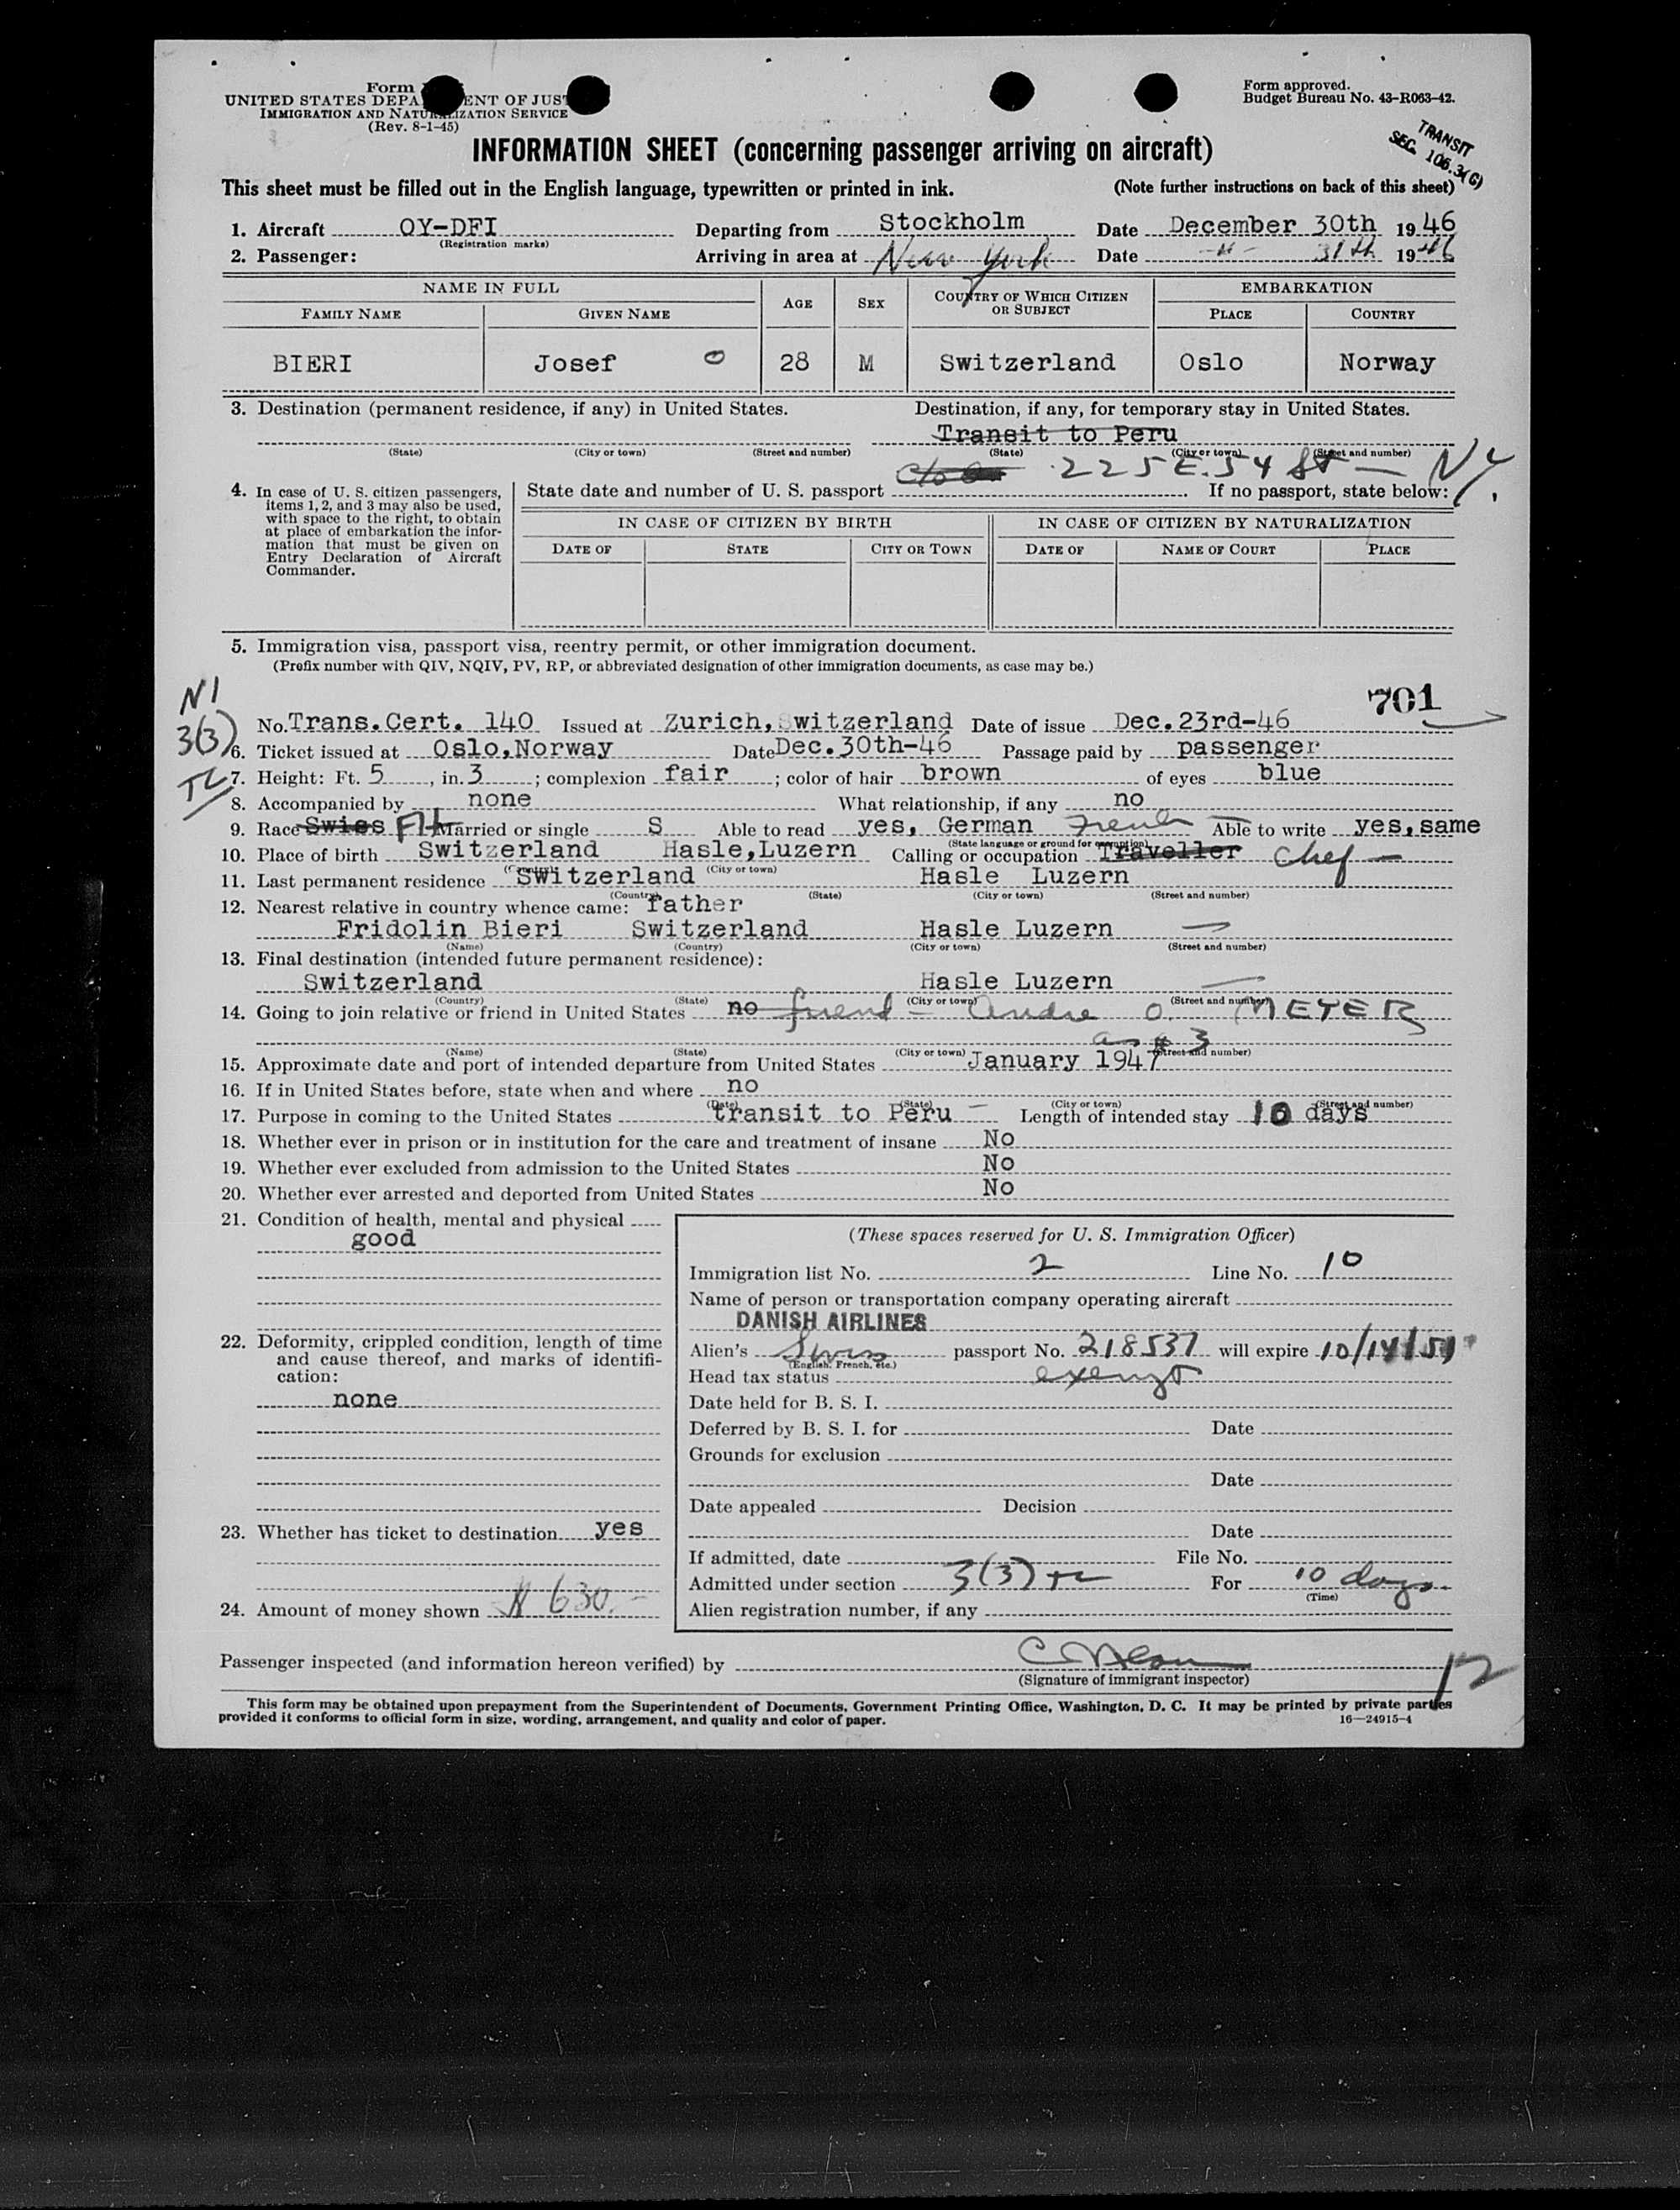 Form
UNITED STATES DEPA ENT OF JUST
IMMIGRATION AND NATURALIZATION SERVICE
(Rev. 8-1-45)
Form approved.
Budget Bureau No. 43-R063-42.
TRANSIT
SEC. 106.3(G)
INFORMATION SHEET (concerning passenger arriving on aircraft)
This sheet must be filled out in the English language, typewritten or printed in ink. (Note further instructions on back of this sheet)
1. Aircraft OY-DFI Departing from Stockholm Date December 30th 1946
(Registration marks)
2. Passenger: Arriving in area at New York Date -"- 31th 1946
NAME IN FULL AGE SEX COUNTRY OF WHICH CITIZEN OR SUBJECT EMBARKATION
FAMILY NAME GIVEN NAME PLACE COUNTRY
BIERI Josef O 28 M Switzerland Oslo Norway
3. Destination (permanent residence, if any) in United States. Destination, if any, for temporary stay in United States.
Transit to Peru
(State) (City or town) (Street and number) (State) (City or town) (Street and number)
c/o 225 E. 54 St — NY.
4. In case of U. S. citizen passengers, items 1, 2, and 3 may also be used, with space to the right, to obtain at place of embarkation the information that must be given on Entry Declaration of Aircraft Commander.
State date and number of U. S. passport If no passport, state below:
IN CASE OF CITIZEN BY BIRTH IN CASE OF CITIZEN BY NATURALIZATION
DATE OF STATE CITY OR TOWN DATE OF NAME OF COURT PLACE
5. Immigration visa, passport visa, reentry permit, or other immigration document.
(Prefix number with QIV, NQIV, PV, RP, or abbreviated designation of other immigration documents, as case may be.)
N1
3(3)
TC
701
No. Trans.Cert. 140 Issued at Zurich,Switzerland Date of issue Dec.23rd-46
6. Ticket issued at Oslo,Norway Date Dec.30th-46 Passage paid by passenger
7. Height: Ft. 5, in. 3; complexion fair; color of hair brown of eyes blue
8. Accompanied by none What relationship, if any no
9. Race Swiss Married or single S Able to read yes, German French Able to write yes,same
(State language or ground for exemption)
10. Place of birth Switzerland Hasle,Luzern Calling or occupation Traveller Chef —
(Country) (City or town)
11. Last permanent residence Switzerland Hasle Luzern
(Country) (State) (City or town) (Street and number)
12. Nearest relative in country whence came: father
Fridolin Bieri Switzerland Hasle Luzern —
(Name) (Country) (City or town) (Street and number)
13. Final destination (intended future permanent residence):
Switzerland Hasle Luzern —
(Country) (State) (City or town) (Street and number)
14. Going to join relative or friend in United States no friend — Andre O. MEYER
as # 3
(Name) (State) (City or town) (Street and number)
15. Approximate date and port of intended departure from United States January 1947
16. If in United States before, state when and where no
(Date) (State) (City or town) (Street and number)
17. Purpose in coming to the United States transit to Peru — Length of intended stay 10 days
18. Whether ever in prison or in institution for the care and treatment of insane No
19. Whether ever excluded from admission to the United States No
20. Whether ever arrested and deported from United States No
21. Condition of health, mental and physical
good
22. Deformity, crippled condition, length of time and cause thereof, and marks of identification:
none
23. Whether has ticket to destination yes
24. Amount of money shown $ 630.-
(These spaces reserved for U. S. Immigration Officer)
Immigration list No. 2 Line No. 10
Name of person or transportation company operating aircraft
DANISH AIRLINES
Alien's Swiss passport No. 218537 will expire 10/14/51
(English, French, etc.)
Head tax status exempt
Date held for B. S. I.
Deferred by B. S. I. for Date
Grounds for exclusion
Date
Date appealed Decision
Date
If admitted, date File No.
Admitted under section 3(3) TC For 10 days.
(Time)
Alien registration number, if any
Passenger inspected (and information hereon verified) by
(Signature of immigrant inspector)
12
This form may be obtained upon prepayment from the Superintendent of Documents, Government Printing Office, Washington, D. C. It may be printed by private parties
provided it conforms to official form in size, wording, arrangement, and quality and color of paper. 16—24915-4